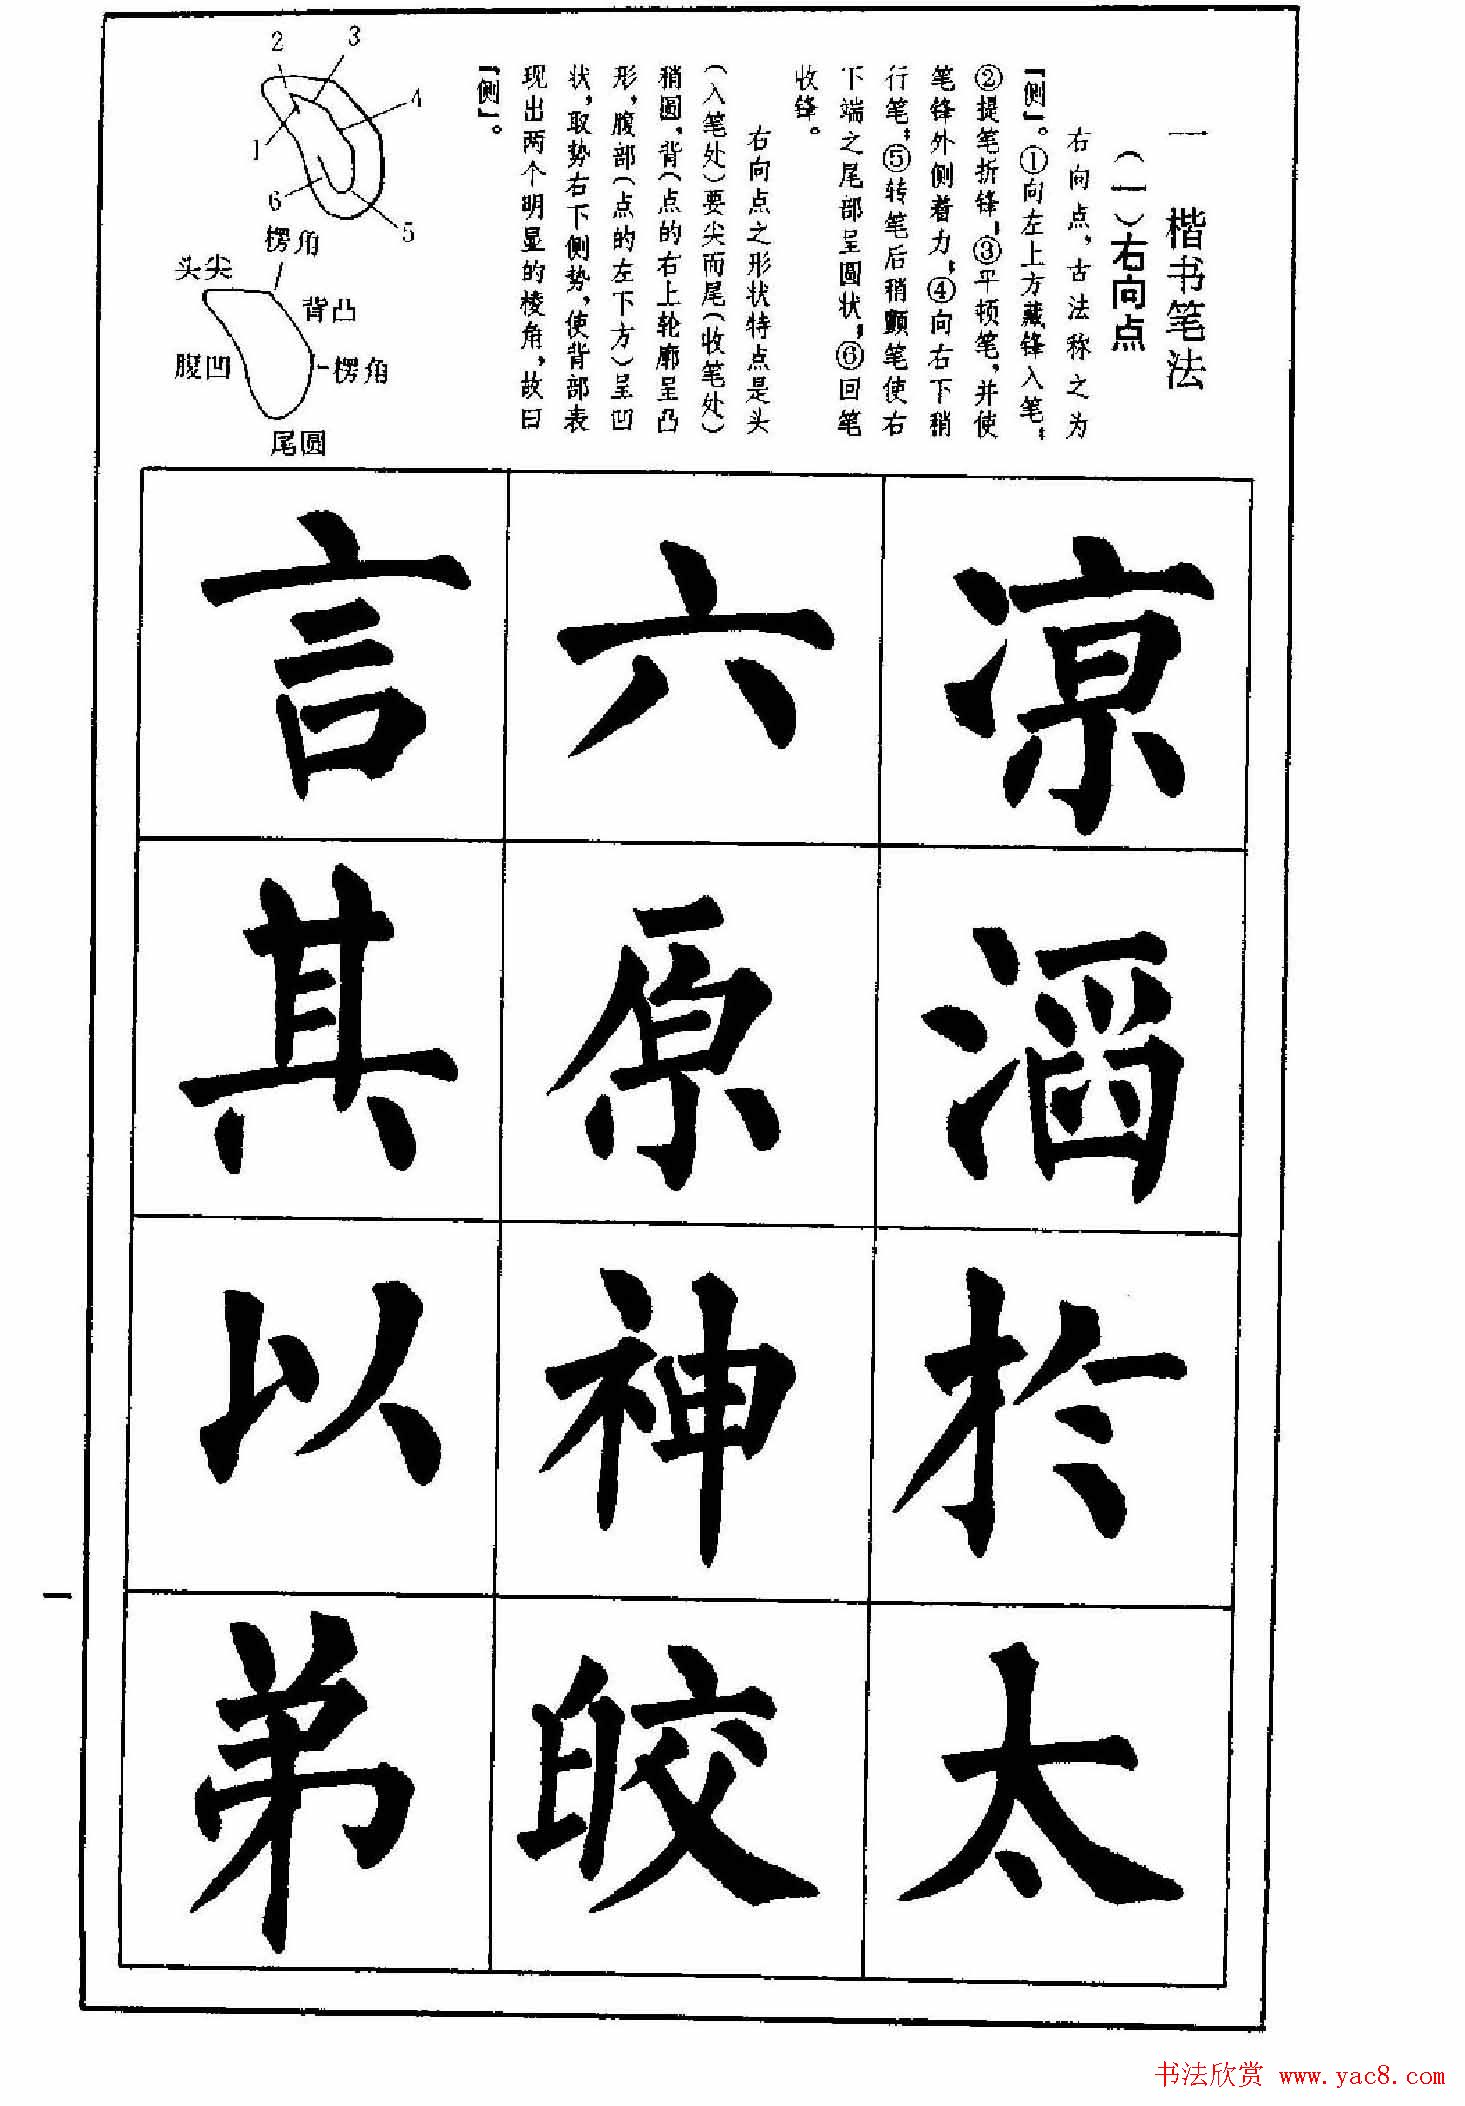 一 楷书笔法
（一）右向点
右向点，古法称之为
『侧』。①向左上方藏锋入笔；
②提笔折锋；③平顿笔，并使
笔锋外侧着力；④向右下稍
行笔；⑤转笔后稍颤笔使右
下端之尾部呈圆状；⑥回笔
收锋。
右向点之形状特点是头
（入笔处）要尖而尾（收笔处）
稍圆，背（点的右上轮廓呈凸
形，腹部（点的左下方）呈凹
状，取势右下侧势，使背部表
现出两个明显的棱角，故曰
『侧』。
2
3
4
1
6
5
楞角
头尖
背凸
腹凹
楞角
尾圆
凉
滔
於
太
六
原
神
皎
言
其
以
弟
一
书法欣赏 www.yac8.com